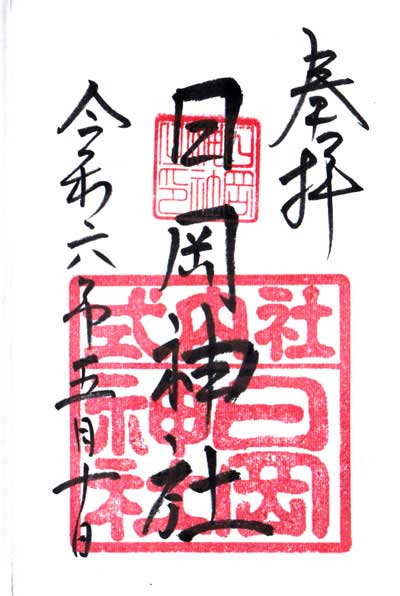 奉拝
日岡神社
令和六年五月十日
式内社
日岡
神社